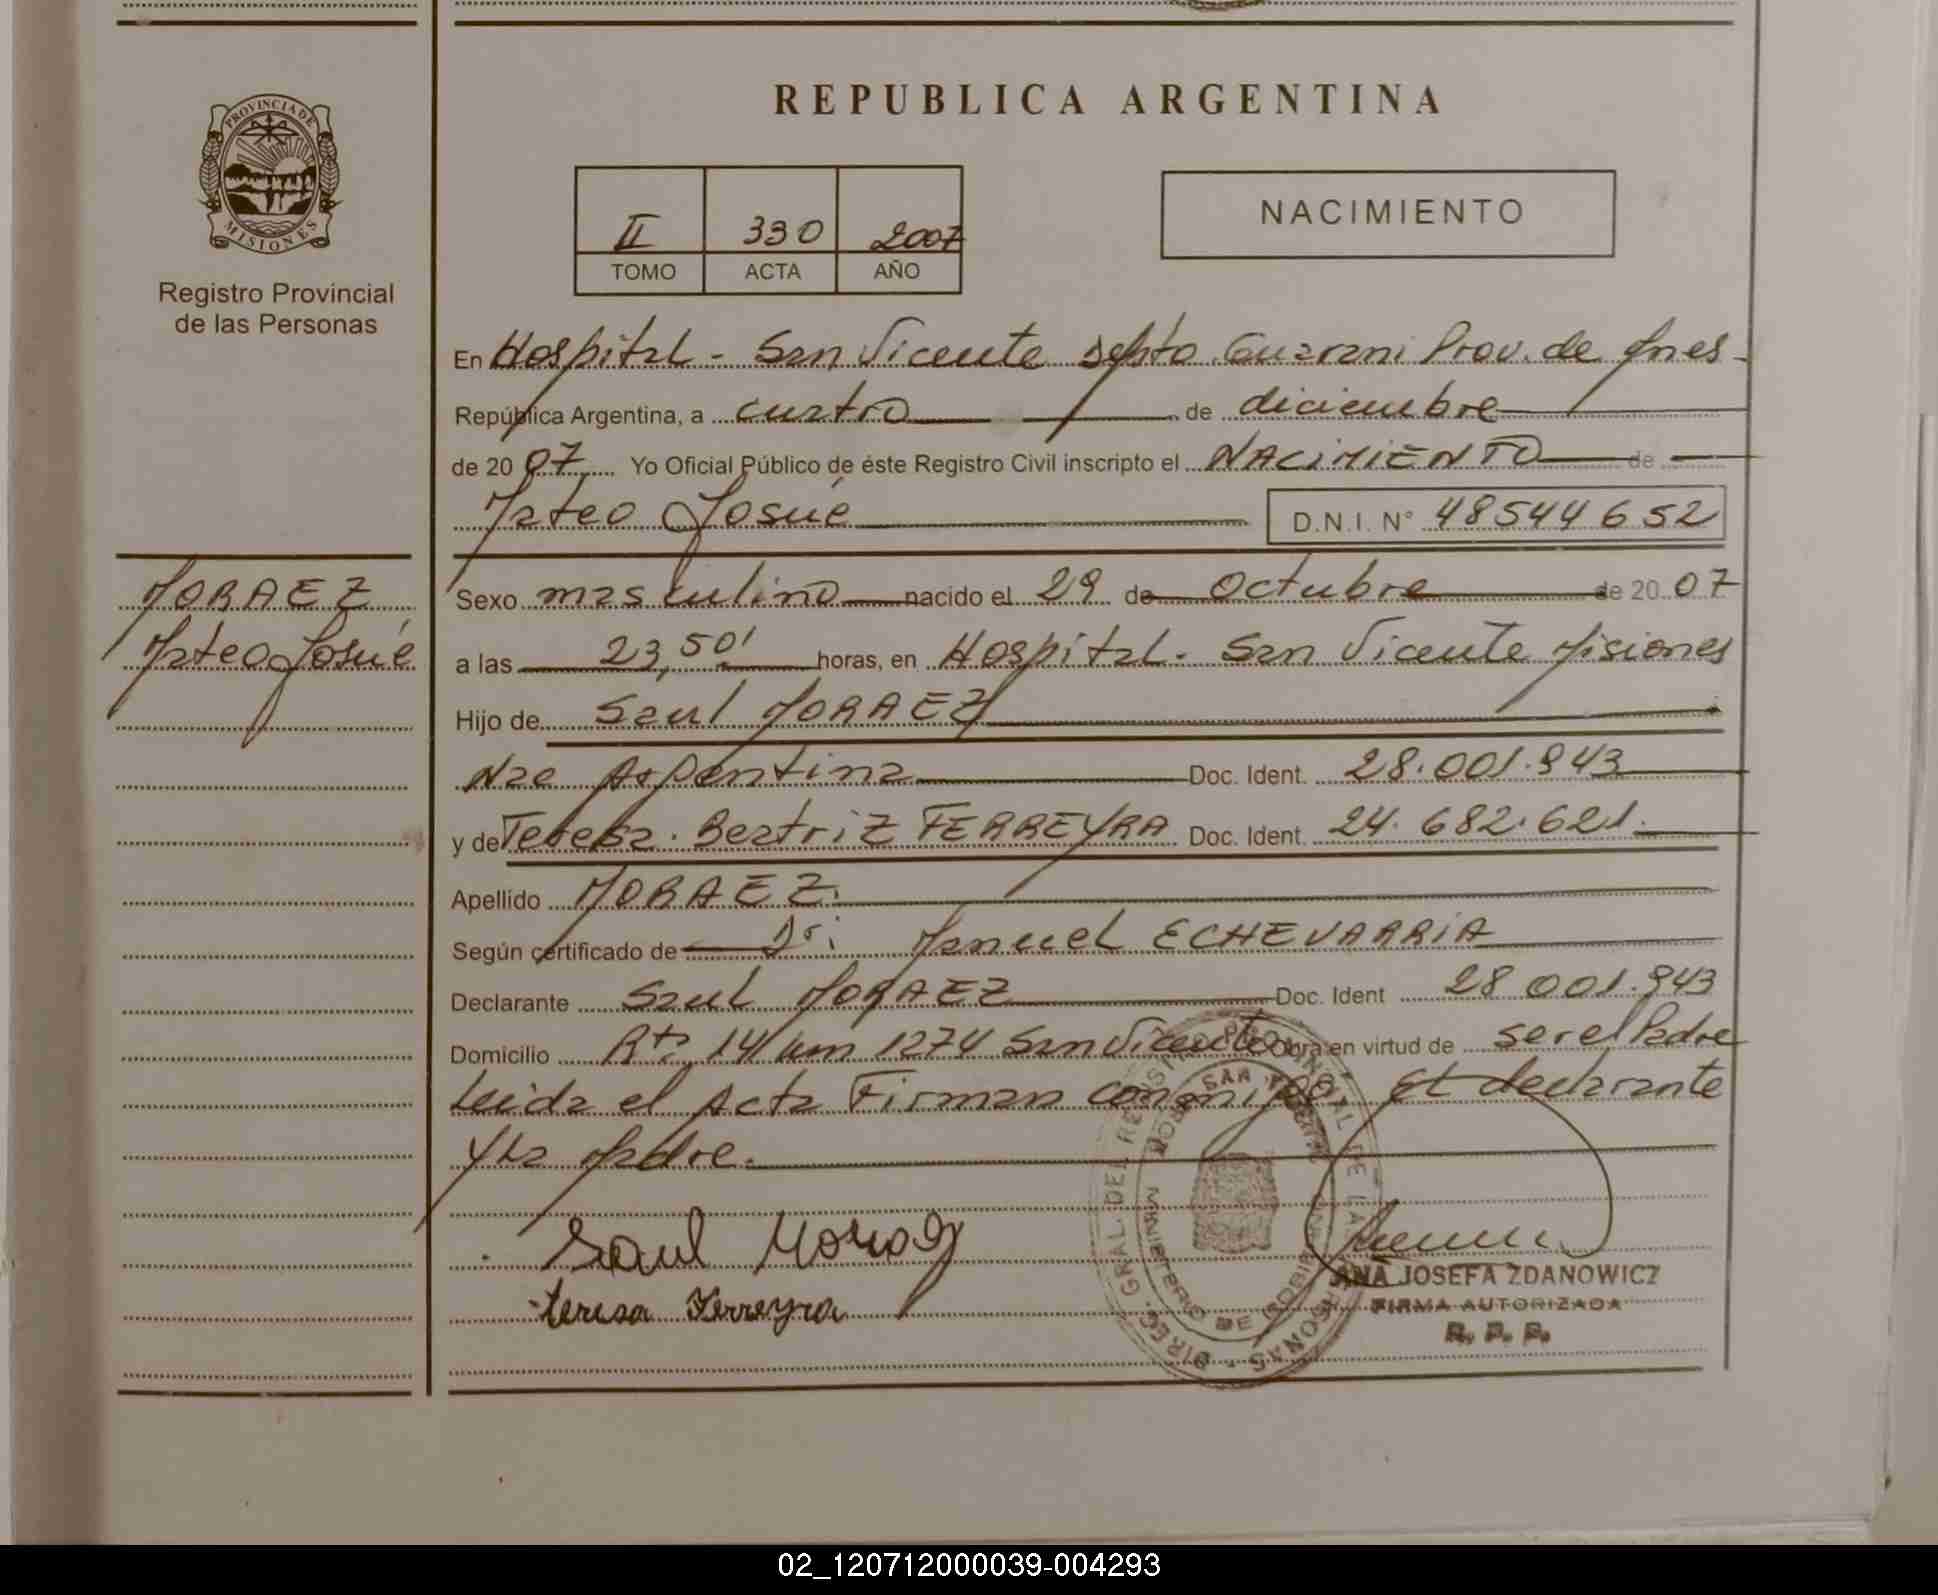 REPUBLICA ARGENTINA
PROVINCIA DE MISIONES
Registro Provincial
de las Personas
II 330 2007
TOMO ACTA AÑO
NACIMIENTO
En Hospital - San Vicente Depto Guarani Prov. de Mnes -
República Argentina, a cuatro de diciembre
de 20 07 Yo Oficial Público de éste Registro Civil inscripto el NACIMIENTO de
Mateo Josué D.N.I. N° 48544652
MORAEZ
Mateo Josué
Sexo masculino nacido el 29 de Octubre de 20 07
a las 23,50' horas, en Hospital - San Vicente Misiones
Hijo de Saul MORAEZ
Nac Argentina Doc. Ident. 28.001.943
y de Teresa Beatriz FERREYRA Doc. Ident. 24.682.621.
Apellido MORAEZ.
Según certificado de Dr. Manuel ECHEVARRIA
Declarante Saul MORAEZ Doc. Ident 28 001.943
Domicilio Rta 14 km 1274 San Vicente Obra en virtud de ser el Padre
Leida el Acta Firman conmigo El declarante
Y La Madre.
Saul Moraez
teresa Ferreyra
DIREC. GRAL DEL REGISTRO PROVINCIAL DE LAS PERSONAS
MINISTERIO DE GOBIERNO
ANA JOSEFA ZDANOWICZ
FIRMA AUTORIZADA
R. P. P.
02_120712000039-004293